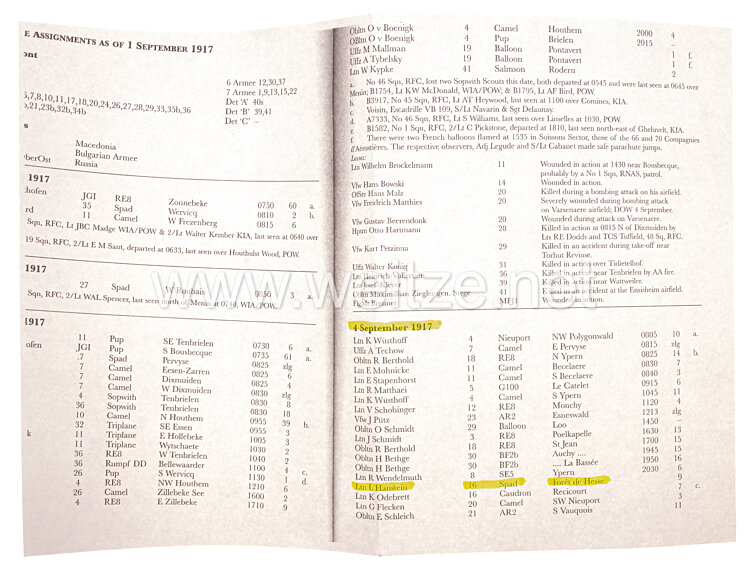 E ASSIGNMENTS AS OF 1 SEPTEMBER 1917
ont
6 Armee 12,30,37
7 Armee 1,9,13,15,22
5,7,8,10,11,17,18,20,24,26,27,28,29,33,35b,36 Det 'A' 40s
b,21,23b,32b,34b Det 'B' 39,41
Det 'C' –
s
Macedonia
Bulgarian Armee
berOst Russia
1917
hofen JGI RE8 Zonnebeke 0750 60 a.
35 Spad Wervicq 0810 2 b.
rd 11 Camel W Frezenberg 0815 6
Sqn, RFC, Lt JBC Madge WIA/POW & 2/Lt Walter Kember KIA, last seen at 0640 over
19 Sqn, RFC, 2/Lt E M Sant, departed at 0633, last seen over Houthulst Wood, POW.
1917
27 Spad W Roubaix 0850 3 a.
Sqn, RFC, 2/Lt WAL Spencer, last seen north of Menin at 0740, WIA/POW.
1917
11 Pup SE Tenbrielen 0730 6 a.
ofen JGI Pup S Bousbecque 0735 61 a.
7 Spad Pervyse 0825 zlg
7 Camel Eesen-Zarren 0825 6
7 Camel Dixmuiden 0825 4
7 Camel W Dixmuiden 0830 zlg
4 Sopwith Tenbrielen 0830 8
36 Sopwith Tenbrielen 0830 18
10 Camel N Houthem 0955 39 b.
32 Triplane SE Essen 0955 3
k 11 Triplane E Hollebeke 1005 3
11 Triplane Wytschaete 1040 2
36 RE8 W Tenbrielen 1100 4
36 Rumpf DD Bellewaarder 1130 1 c.
26 Pup S Wervicq 1210 6 d.
4 RE8 NW Houthem 1600 2
26 Camel Zillebeke See 1710 9
4 RE8 E Zillebeke
Obltn O v Boenigk 4 Camel Houthem 2000 4
Obltn O v Boenigk 4 Pup Brielen 2015 –
Uffz M Mallman 19 Balloon Pontavert 1 f.
Uffz A Tybelsky 19 Balloon Pontavert 1 f.
Ltn W Kypke 41 Salmson Rodern 2
a. No 46 Sqn, RFC, lost two Sopwith Scouts this date, both departed at 0545 and were last seen at 0645 over
Menin; B1754, Lt KW McDonald, WIA/POW; & B1795, Lt AF Bird, POW.
b. B3917, No 45 Sqn, RFC, Lt AT Heywood, last seen at 1100 over Comines, KIA.
c. Voisin, Escadrille VB 109, S/Lt Navarin & Sgt Delaunay.
d. A7333, No 46 Sqn, RFC, Lt S Williams, last seen over Linselles at 1030, POW.
e. B1582, No 1 Sqn, RFC, 2/Lt C Pickstone, departed at 1810, last seen north-east of Gheluvelt, KIA.
f. There were two French balloons flamed at 1535 in Soissons Sector, those of the 66 and 70 Compagnies
d'Aérostières. The respective observers, Adj Legude and S/Lt Cabanet made safe parachute jumps.
Losses:
Ltn Wilhelm Brockelmann 11 Wounded in action at 1430 near Bousbecque,
probably by a No 1 Sqn, RNAS, patrol.
Vfw Hans Bowski 14 Wounded in action.
OfStv Hans Malz 20 Killed during a bombing attack on his airfield.
Vfw Freidrich Matthies 20 Severely wounded during bombing attack
on Varsenaere airfield; DOW 4 September.
Vfw Gustav Beerendonk 20 Wounded during attack on Varsenaere airfield.
Hptm Otto Hartmann 28 Killed in action at 0815 N of Dixmuiden by
Lts RE Dodds and TCS Tuffield, 48 Sq, RFC.
Vfw Kurt Petzinna 29 Killed in an accident during take-off near
Torhut Revinse.
Uffz Walter König 31 Killed in action over Tidietelhof.
Ltn Heinrich Vollertsen 36 Killed in action near Tenbrielen by AA fire.
Ltn Josef Kleim 39 Killed in action near Wattweiler.
Ltn Maximilian Ziegler gen. Stege 41 Killed in accident at the Ensisheim airfield.
FlgMt Brenner MFJI Wounded in action.
4 September 1917
Ltn K Wüsthoff 4 Nieuport NW Polygonwald 0805 10 a.
Uffz A Techow 7 Camel E Pervyse 0815 zlg
Obltn R Berthold 18 RE8 N Ypern 0825 14 b.
Ltn E Mohnicke 11 Camel Becelaere 0830 7
Ltn E Stapenhorst 11 Camel S Becelaere 0840 3
Ltn R Matthaei 5 G100 Le Catelet 0915 6
Ltn K Wüsthoff 4 Camel S Ypern 1045 11
Ltn V Schobinger 12 RE8 Monchy 1120 4
Vfw J Pütz 23 AR2 Esneswald 1213 zlg
Obltn O Schmidt 29 Balloon Loo 1450 –
Ltn J Schmidt 3 RE8 Poelkapelle 1630 13
Obltn R Berthold 18 RE8 St Jean 1700 15
Obltn H Bethge 30 BF2b Auchy .... 1945 15
Obltn H Bethge 30 BF2b .... La Bassée 1950 16
Ltn R Wendelmuth 8 SE5 Ypern 2030 6
Ltn L Hanstein 16 Spad Forêt de Hesse 9
Ltn K Odebrett 16 Caudron Recicourt 7 c.
Ltn G Flecken 20 Camel SW Nieuport 3
Obltn E Schleich 21 AR2 S Vauquois 11
www.weitze.net